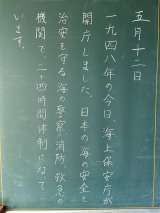 五月十二日
一九四八年の今日、海上保安庁が
開庁しました。日本の海の安全と
治安を守る海の警察・消防・救急の
機関で、二十四時間体制になって
います。